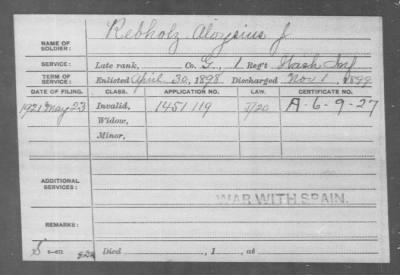 NAME OF SOLDIER: Rebholz Aloysius J
SERVICE: Late rank, Co. G, 1 Reg't Wash Inf
TERM OF SERVICE: Enlisted April 30, 1898 Discharged Nov 1, 1899
DATE OF FILING. CLASS. APPLICATION NO. LAW. CERTIFICATE NO.
1921 May 23 Invalid, 1451119 A-6-9-27
Widow,
Minor,
ADDITIONAL SERVICES:
WAR WITH SPAIN.
REMARKS:
Died , 1 , at